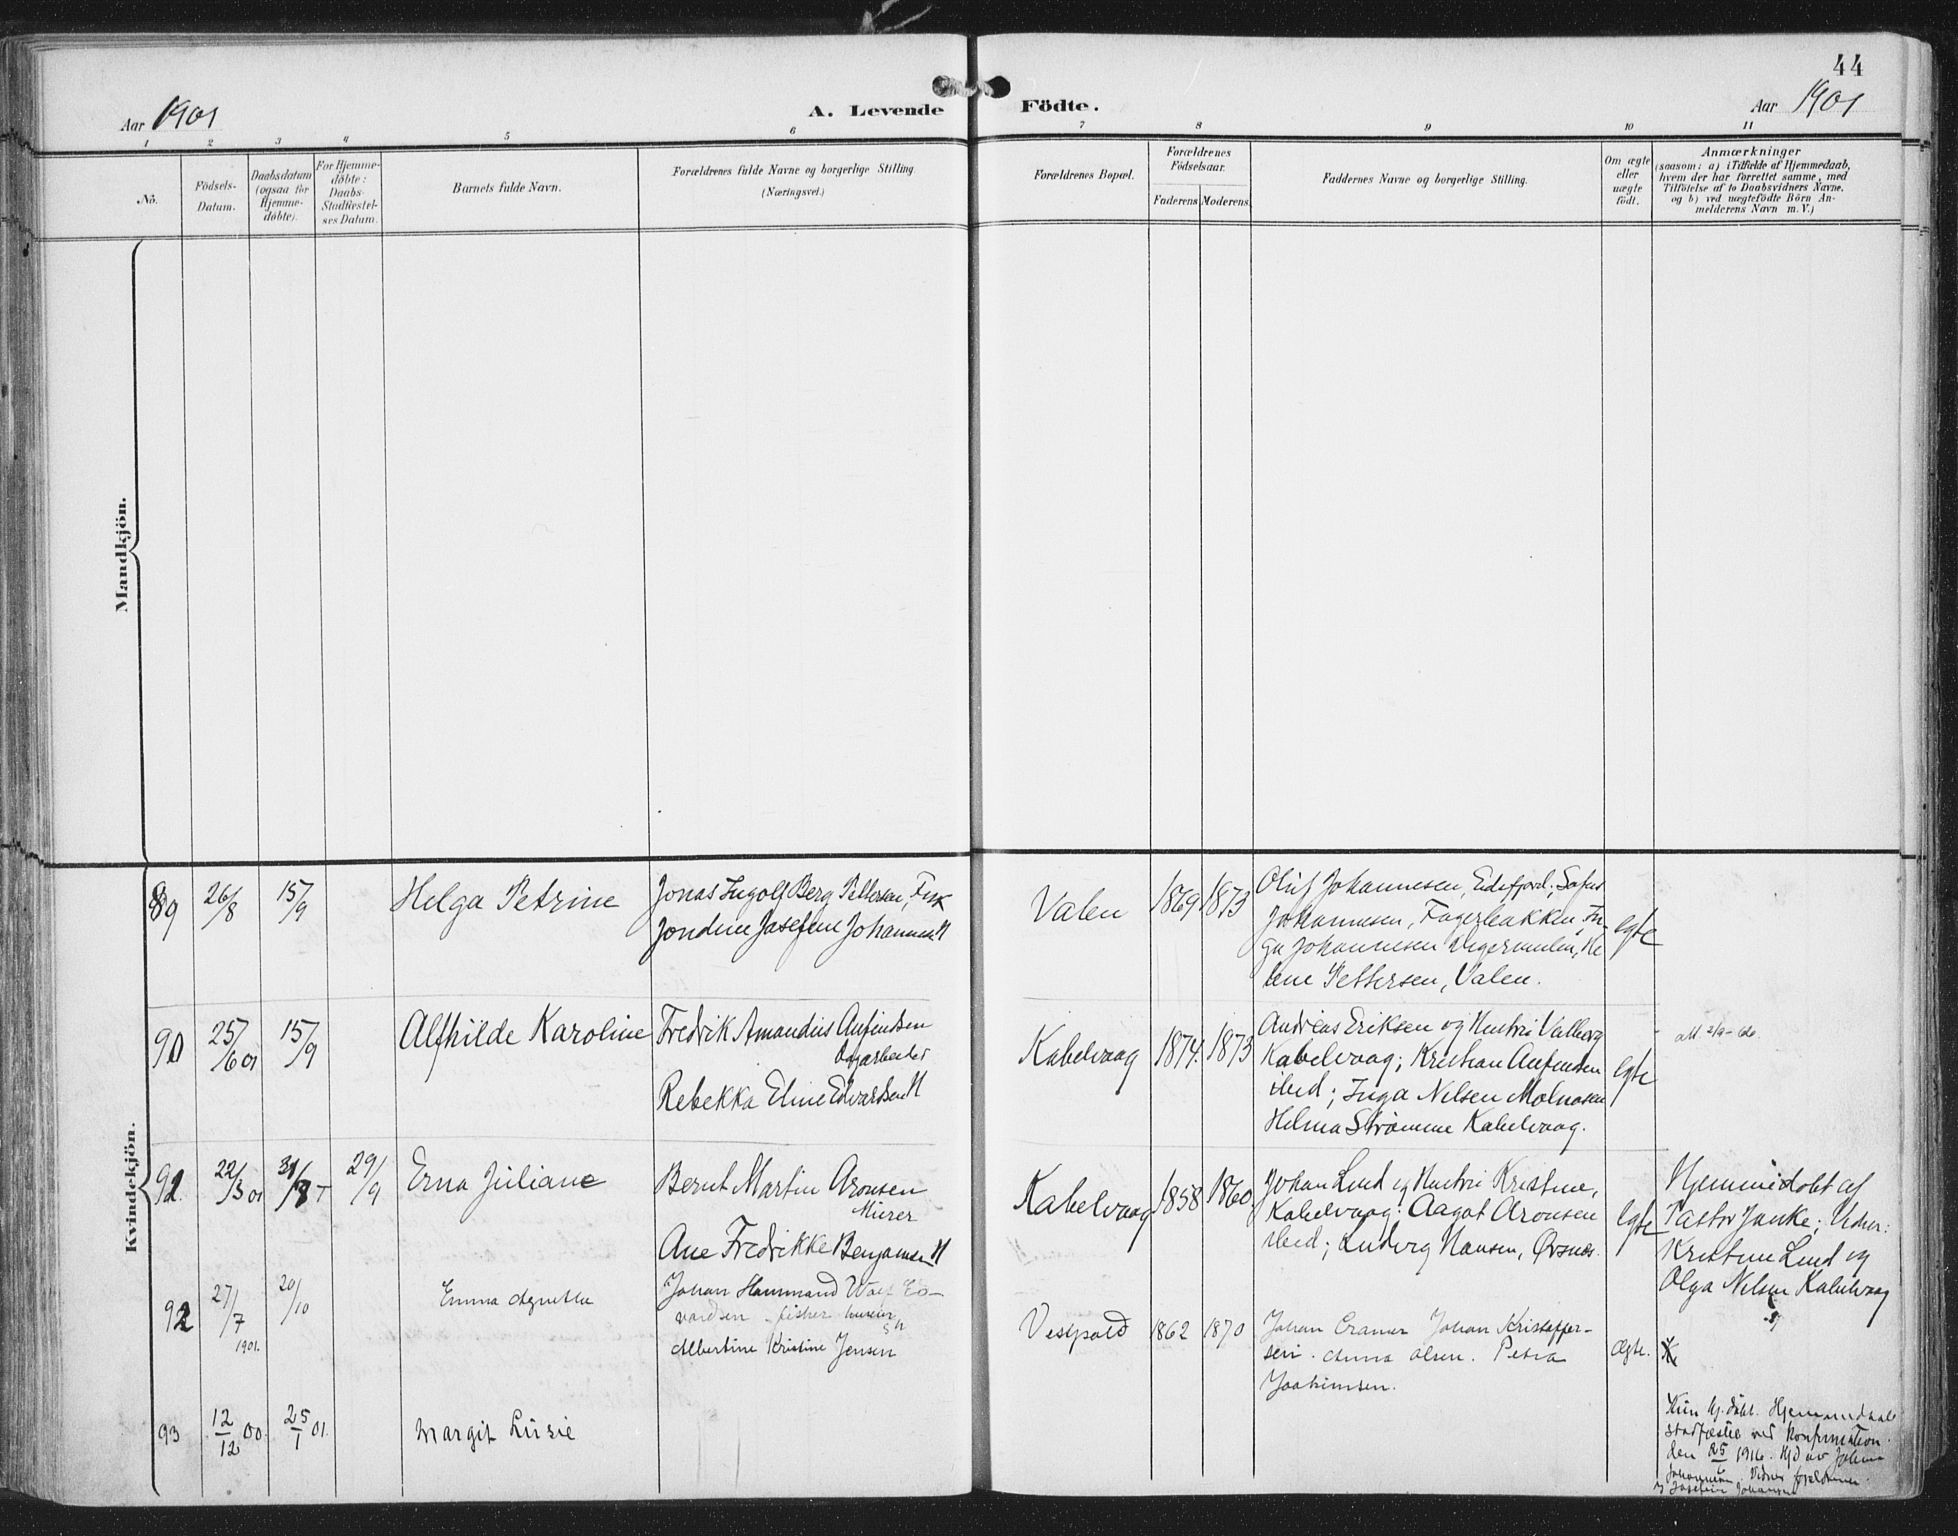 44
Aar 1901
A. Levende
Födte.
Aar 1901
1 2 3 4 5 6 7 8 9 10 11
No.
Födsels-
Datum.
Daabsdatum
(ogsaa for
Hjemme-
döbte).
For Hjemme-
döbte:
Daabs-
Stadfæstel-
ses Datum.
Barnets fulde Navn.
Forældrenes fulde Navne og borgerlige Stilling
(Næringsvei.)
Forældrenes Bopæl.
Forældrenes
Födselsaar.
Faderens
Moderens
Faddernes Navne og borgerlige Stilling.
Om ægte
eller
uægte
födt.
Anmærkninger
(saasom: a) i Tilfælde af Hjemmedaab,
hvem der har forrettet samme, med
Tilföielse af to Daabsvidners Navne,
og b) ved uægtefödte Börn An-
melderens Navn m. V.)
Mandkjön.
Kvindekjön.
89
26/8
15/9
Helga Petrine
Jonas Ingolf Berg Pettersen, Fisk
Jondine Josefine Johannesen H
Valen
1869
1873
Oluf Johannesen, Eidsfjord; Sofus
Johannesen, Fagerbakken, In-
ga Johannesen Digermulen, He
lene Pettersen, Valen.
egte
90
25/6 01
15/9
Alfhilde Karoline
Fredrik Amandus Anfindsen
Rebekka Eline Edvardsen H
Kabelvaag
1874
1873
Andreas Eriksen og Hustru Valborg
Kabelvaag; Kristian Anfindsen
ibid; Inga Nilsen Molnosen
Helma Strømme Kabelvaag.
egte
92
22/3 01
31/8
29/9
Erna Juliane
Bernt Martin Aronsen
Murer
Ane Fredrikke Benjamsen H
Kabelvaag
1858
1860
Johan Lund og Hustru Kristine,
Kabelvaag; Aagot Aronsen
ibid; Ludvig Hansen, Ørsnes.
egte
Hjemmedøbt af
Pastor Janke; Vidner:
Kristine Lund og
Olga Nilsen Kabelvaag
92
27/7 1901.
20/10
Emma Agnetha
Johan Hammond Wolf Ed-
vardsen fisker
Albertine Kristine Jensen
Vestpold
1862
1870
Johan Cramer Johan Kristoffer-
sen. Anna Olsen. Petra
Joakimsen.
Ægte.
93
12/12 00.
25/1 01.
Margit Lusie
Kun hj. døbt. Hjemmedaab
stadfæstet ved konfirmation
den 25/6 1916. Hjd av
Johannesen. Vidner foreldrene
Johansen